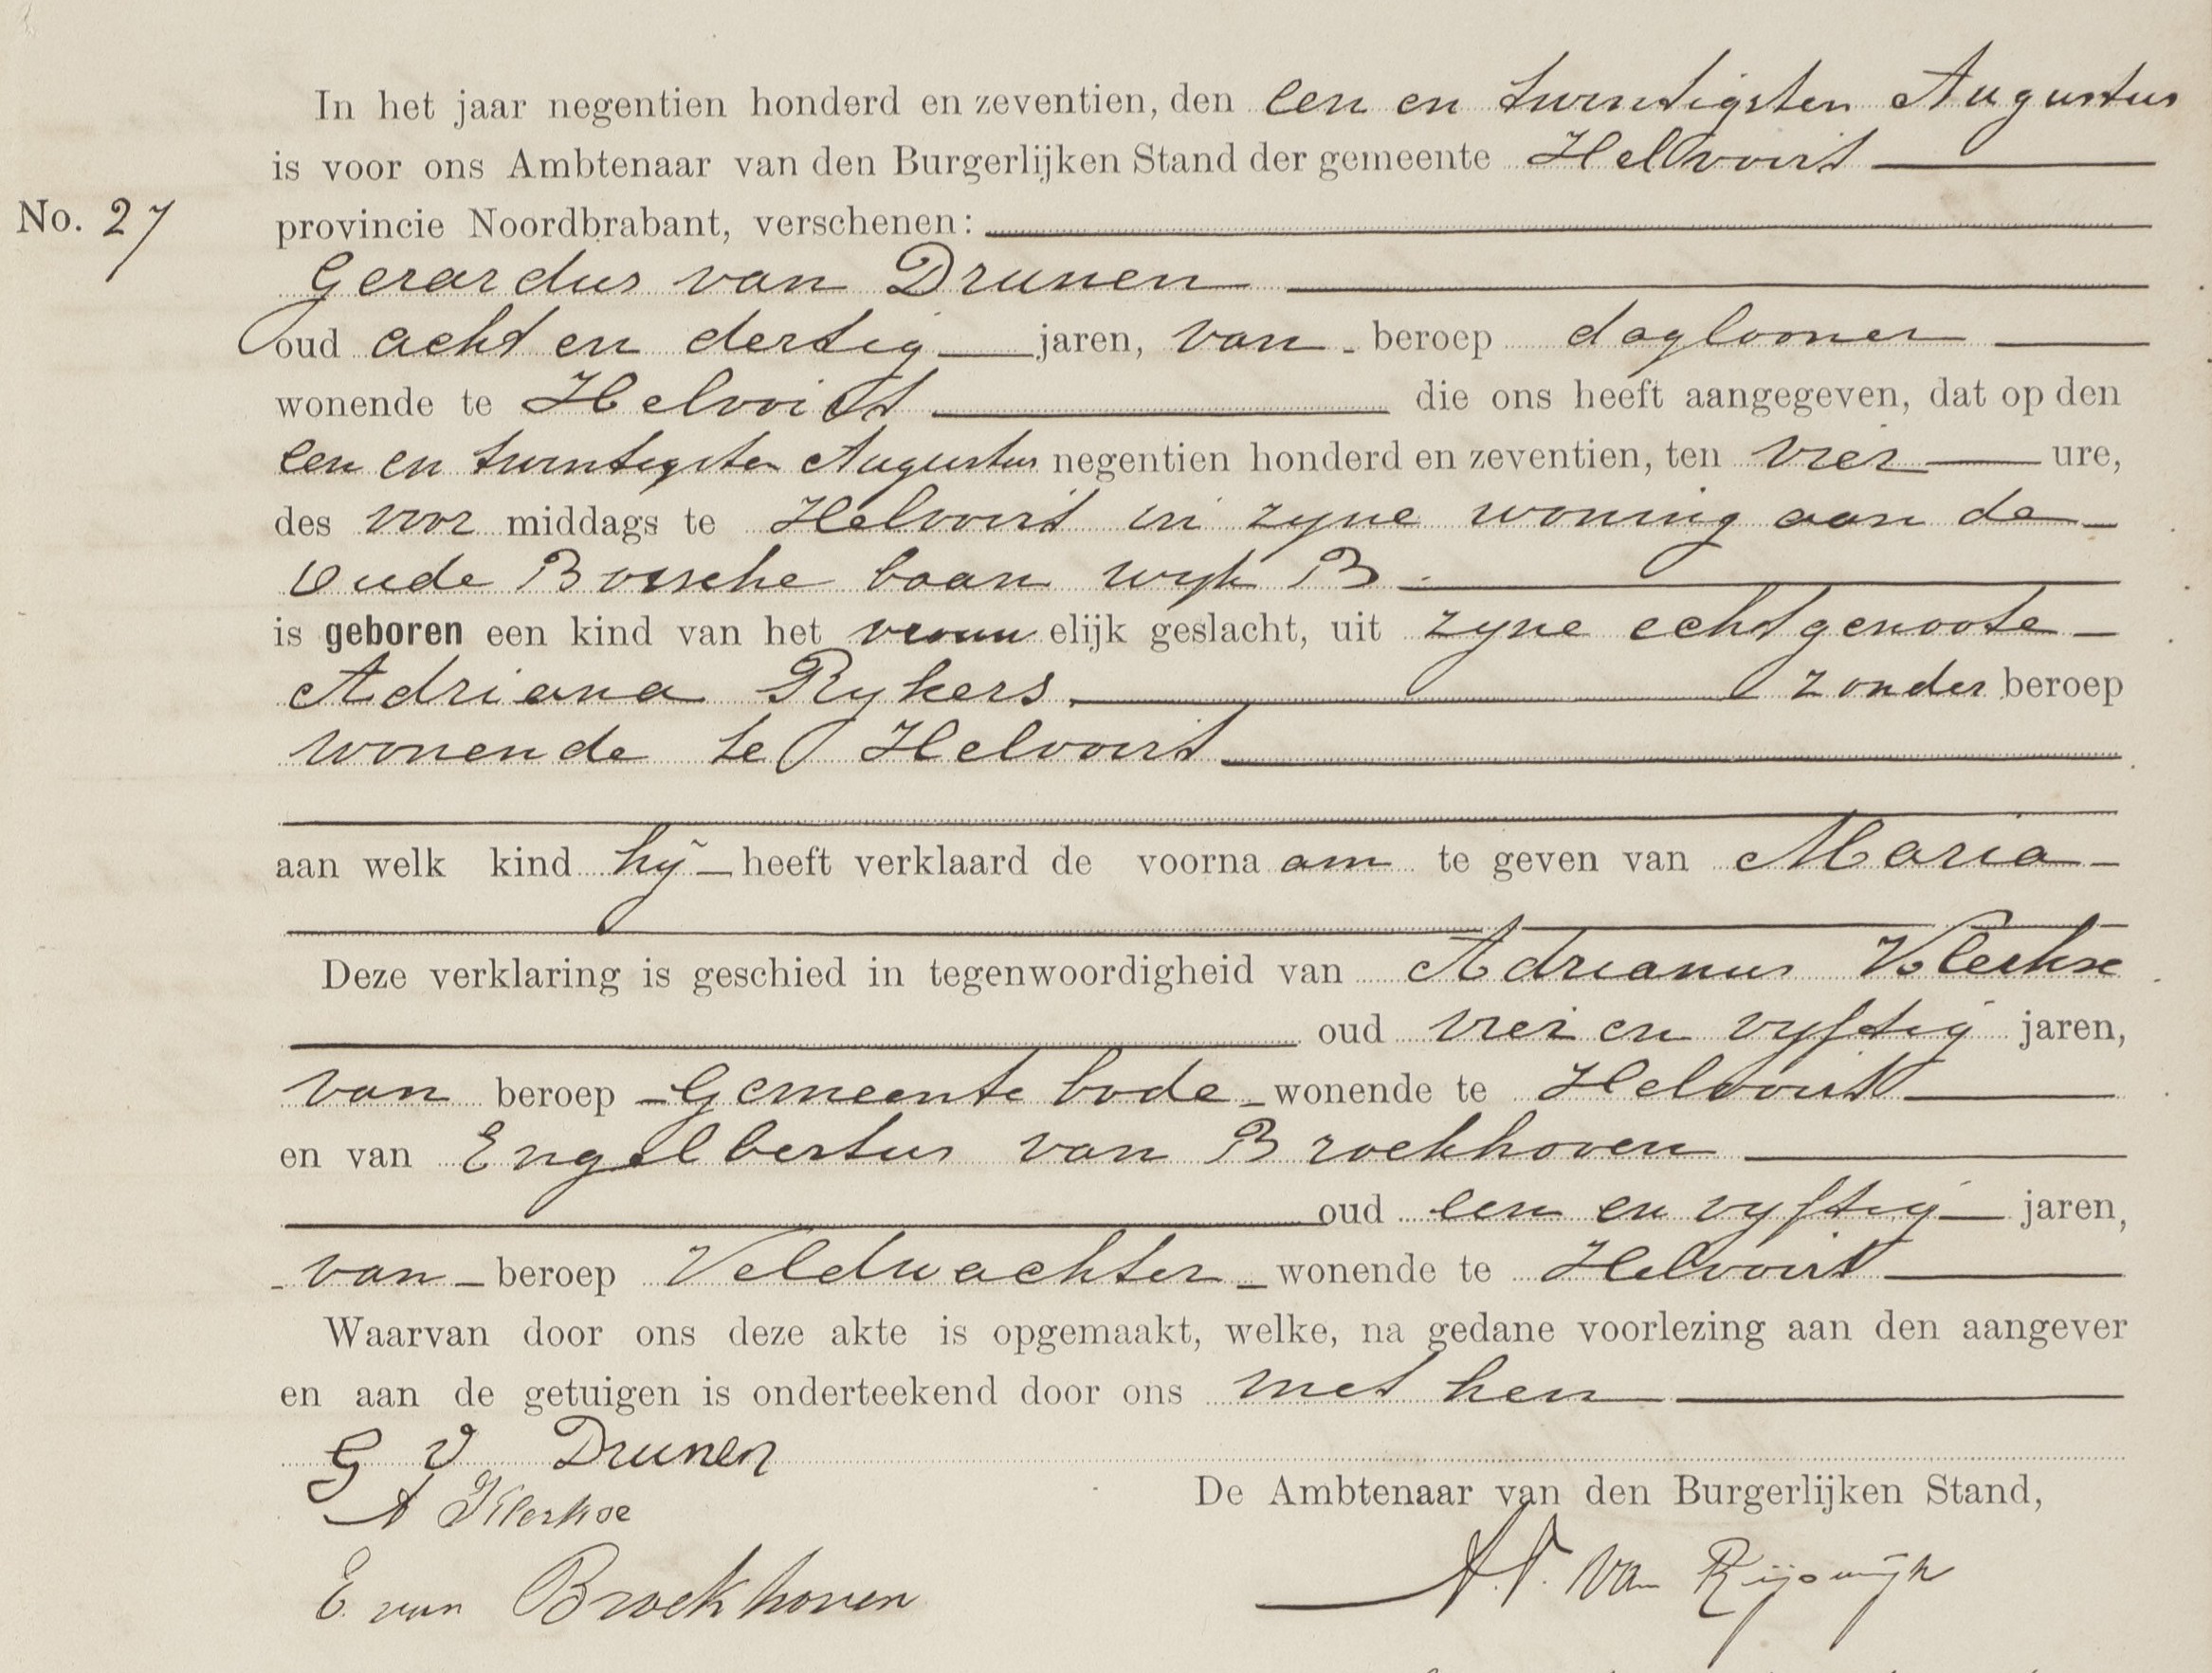 In het jaar negentien honderd en zeventien, den een en twintigsten Augustus
is voor ons Ambtenaar van den Burgerlijken Stand der gemeente Helvoirt
No. 27
provincie Noordbrabant, verschenen:
Gerardus van Drunen
oud acht en dertig jaren, van beroep daglooner
wonende te Helvoirt die ons heeft aangegeven, dat op den
een en twintigsten Augustus negentien honderd en zeventien, ten vier ure,
des voor middags te Helvoirt in zyne woning aan de
Oude Bossche baan wyk B
is geboren een kind van het vrouw elijk geslacht, uit zyne echtgenoote
Adriana Rykers zonder beroep
wonende te Helvoirt
aan welk kind hij heeft verklaard de voorna am te geven van Maria
Deze verklaring is geschied in tegenwoordigheid van Adrianus
oud vier en vyftig jaren,
van beroep Gemeente bode wonende te Helvoirt
en van Engelbertus van Broekhoven
oud een en vyftig jaren,
van beroep Veldwachter wonende te Helvoirt
Waarvan door ons deze akte is opgemaakt, welke, na gedane voorlezing aan den aangever
en aan de getuigen is onderteekend door ons met hen
G V Drunen
De Ambtenaar van den Burgerlijken Stand,
A
E. van Broekhoven
van Rijswijk